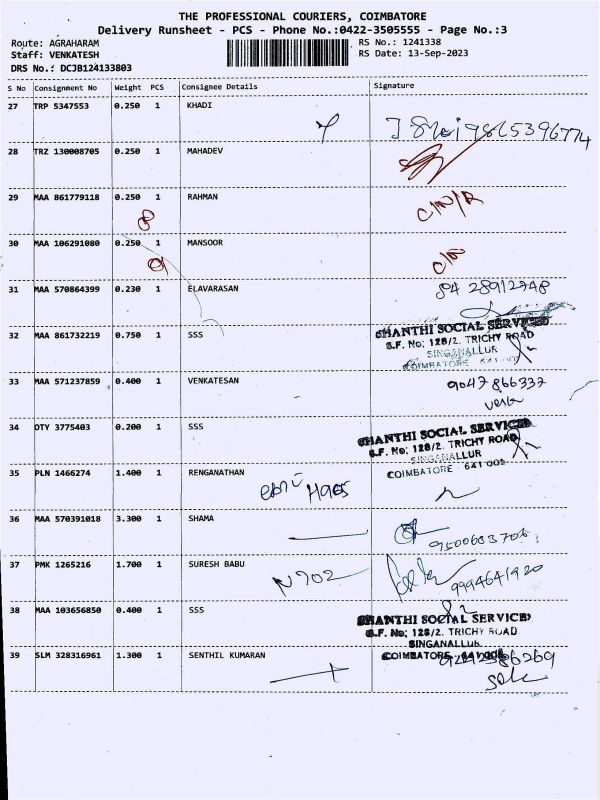 THE PROFESSIONAL COURIERS, COIMBATORE
Delivery Runsheet - PCS - Phone No.:0422-3505555 - Page No.:3
Route: AGRAHARAM RS No.: 1241338
Staff: VENKATESH RS Date: 13-Sep-2023
DRS No.: DCJB124133803
S No Consignment No Weight PCS Consignee Details Signature
27 TRP 5347553 0.250 1 KHADI
28 TRZ 130008705 0.250 1 MAHADEV
29 MAA 861779118 0.250 1 RAHMAN C/N/R
30 MAA 106291080 0.250 1 MANSOOR C/N
31 MAA 570864399 0.230 1 ELAVARASAN
32 MAA 861732219 0.750 1 SSS
SHANTHI SOCIAL SERVICES
S.F. No: 128/2. TRICHY ROAD
SINGANALLUR
COIMBATORE
33 MAA 571237859 0.400 1 VENKATESAN 9047866337
34 OTY 3775403 0.200 1 SSS
SHANTHI SOCIAL SERVICES
S.F. No: 128/2. TRICHY ROAD
SINGANALLUR
COIMBATORE - 641 005
35 PLN 1466274 1.400 1 RENGANATHAN
36 MAA 570391018 3.300 1 SHAMA
37 PMK 1265216 1.700 1 SURESH BABU N702 9994641920
38 MAA 103656850 0.400 1 SSS
SHANTHI SOCIAL SERVICES
S.F. No: 128/2. TRICHY ROAD
SINGANALLUR
COIMBATORE - 641 005
39 SLM 328316961 1.300 1 SENTHIL KUMARAN